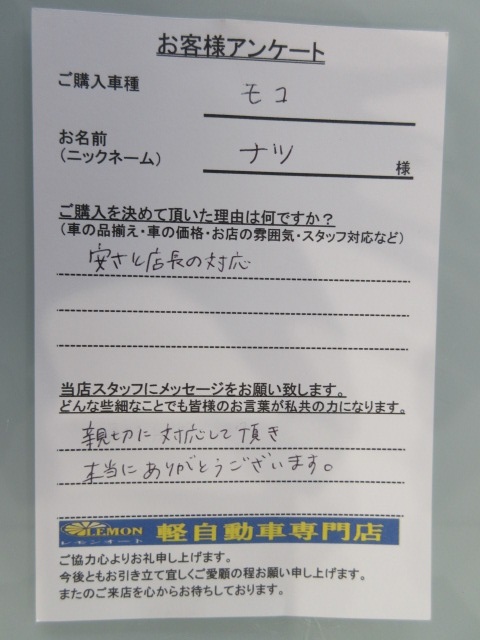 お客様アンケート
ご購入車種
モコ
お名前
(ニックネーム)
ナツ
様
ご購入を決めて頂いた理由は何ですか？
(車の品揃え・車の価格・お店の雰囲気・スタッフ対応など)
安さと店長の対応
当店スタッフにメッセージをお願い致します。
どんな些細なことでも皆様のお言葉が私共の力になります。
親切に対応して頂き
本当にありがとうございます。
LEMON
レモンオート
軽自動車専門店
ご協力心よりお礼申し上げます。
今後ともお引き立て宜しくご愛顧の程お願い申し上げます。
またのご来店を心からお待ちしております。